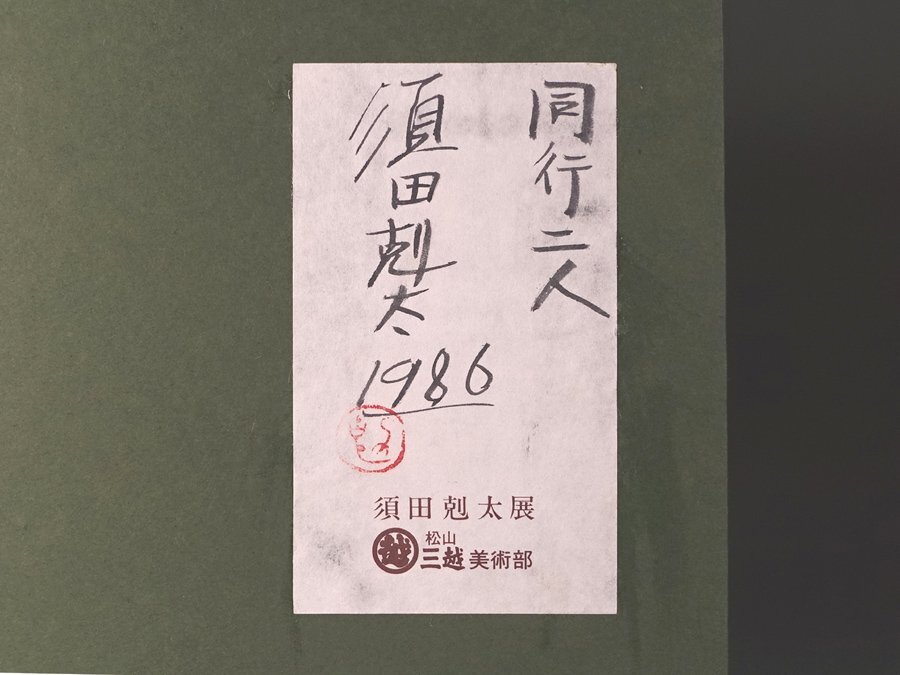 同行二人
須田剋太
1986
須田剋太展
越 松山
三越 美術部